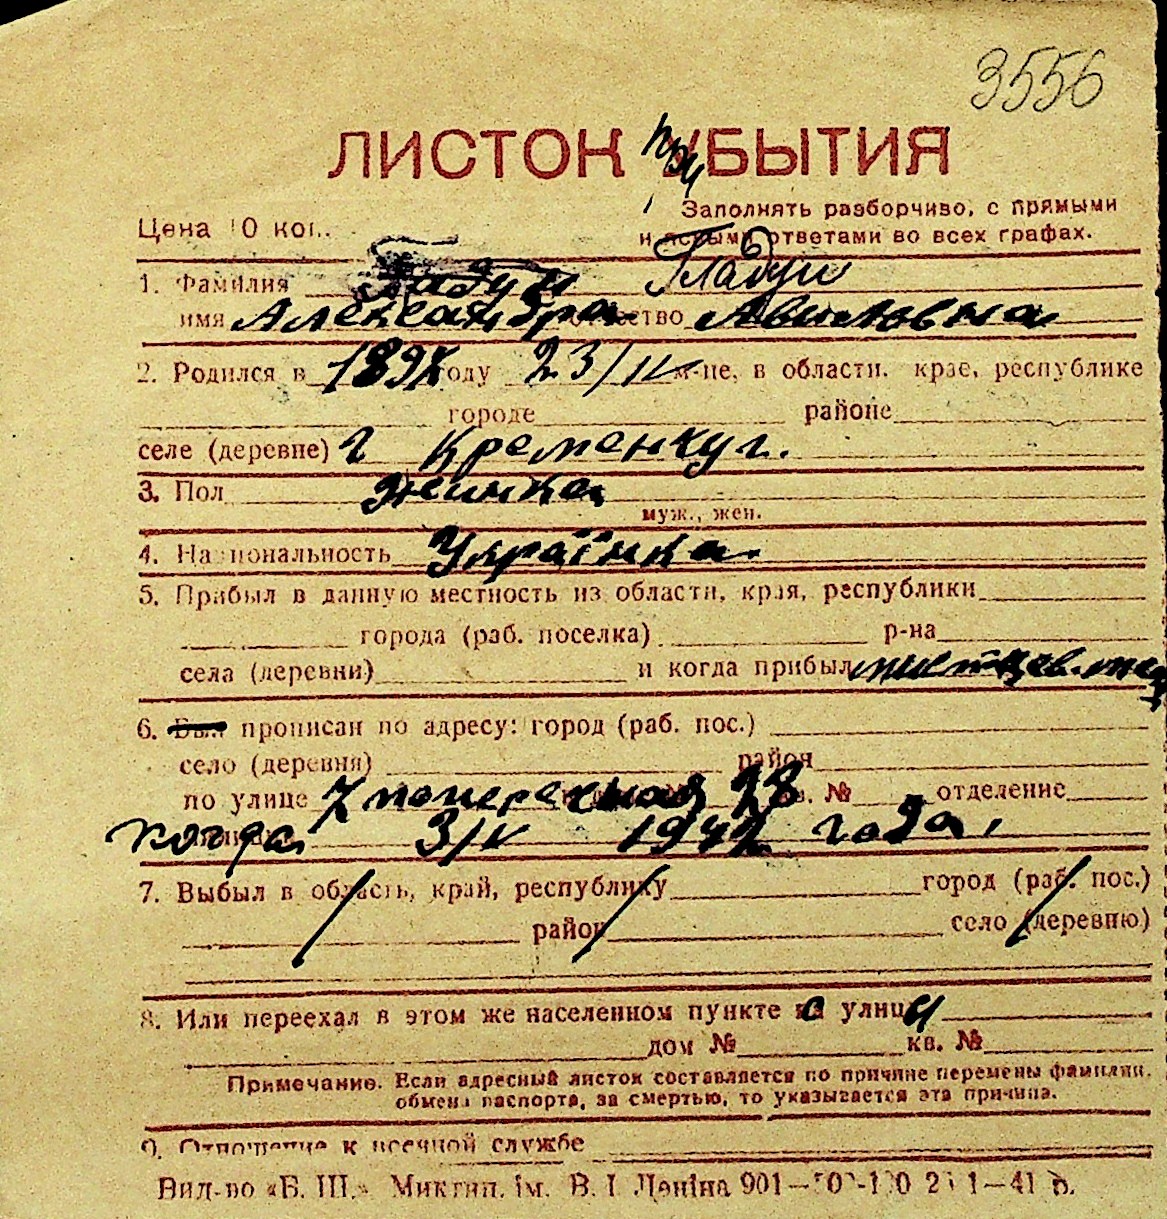 3556
ЛИСТОК при УБЫТИЯ
Заполнять разборчиво, с прямыми
Цена 10 коп. и ясными ответами во всех графах.
1. Фамилия Гладуш
имя Александра отчество Авиловна
2. Родился в 1897 году 23/IV м-це, в области, крае, республике
городе районе
селе (деревне) г Кременчуг.
3. Пол жинка
муж., жен.
4. Национальность Українка
5. Прибыл в данную местность из области, края, республики
города (раб. поселка) р-на
села (деревни) и когда прибыл
6. Был прописан по адресу: город (раб. пос.)
село (деревня) район
по улице 7 поперечная 28 кв. № отделение
когда 3/IV 1942 года,
7. Выбыл в область, край, республику город (раб. пос.)
район село (деревню)
8. Или переехал в этом же населенном пункте с улицы
дом № кв. №
Примечание. Если адресный листок составляется по причине перемены фамилии,
обмена паспорта, за смертью, то указывается эта причина.
9. Отношение к военной службе
Вид-во «Б. Ш.» Миктип. ім. В. І Леніна 901